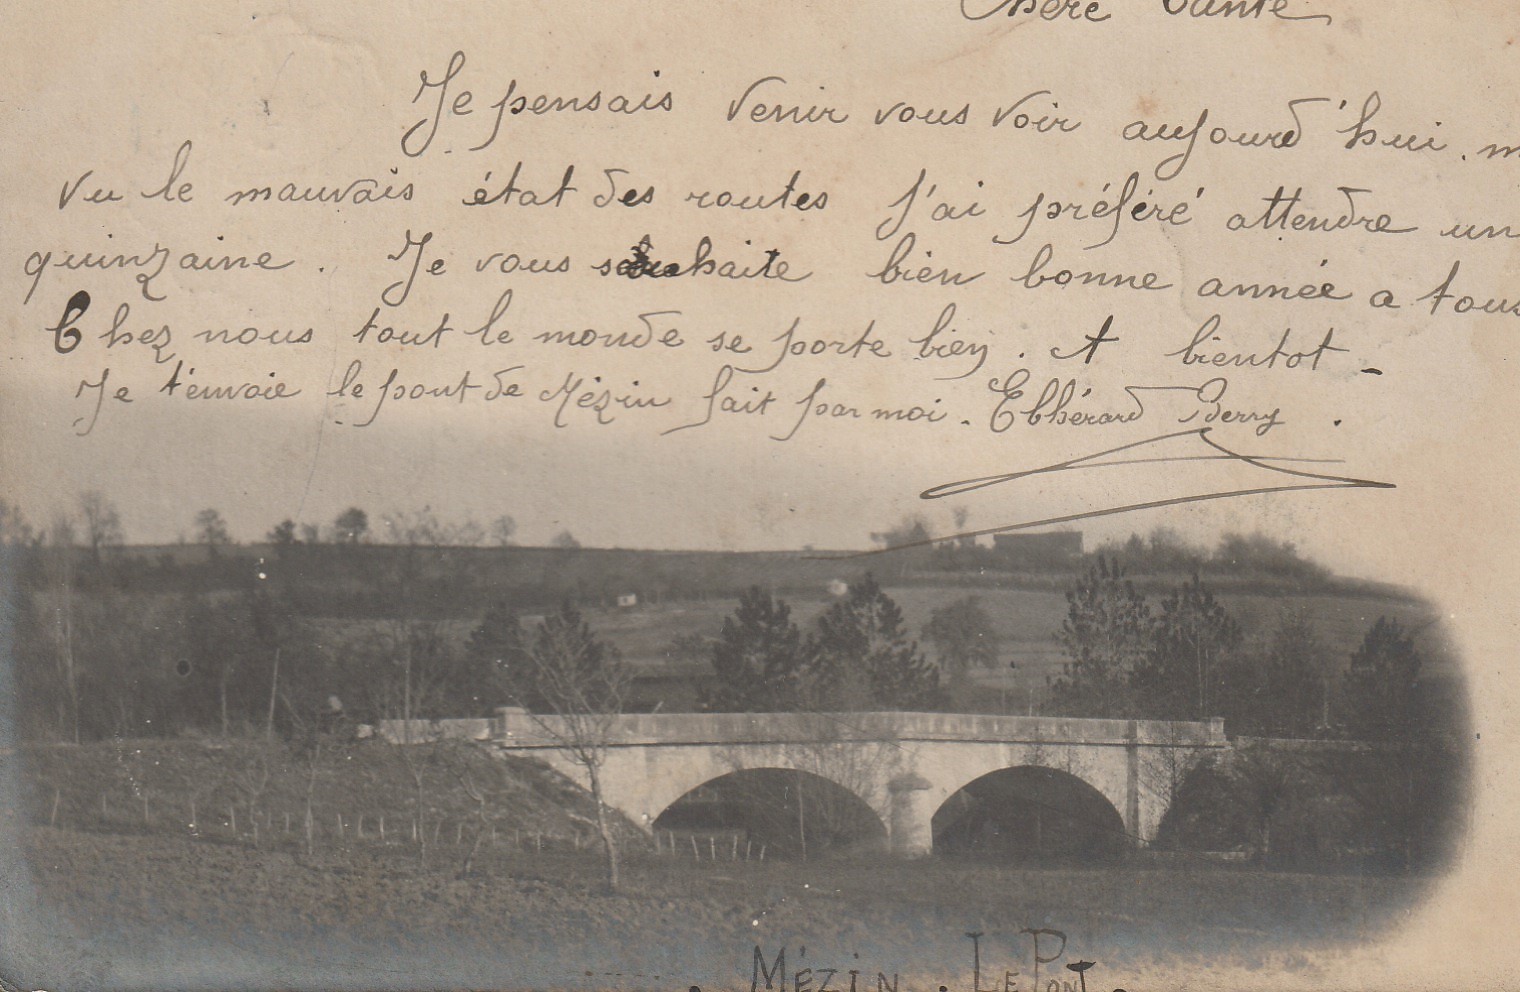 Chère Tante
Je pensais venir vous voir aujourd'hui. m
vu le mauvais état des routes j'ai préféré attendre un
quinzaine. Je vous souhaite bien bonne année a tous
Chez nous tout le monde se porte bien. A bientot -
Je t'envoie le pont de Mézin fait par moi. Ebhérard Berry.
. MÉZIN. LE PONT.